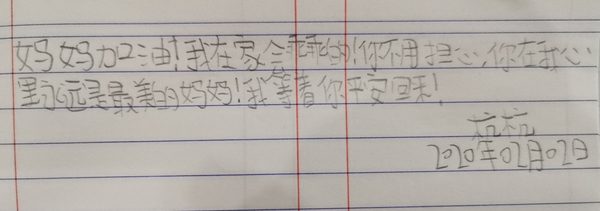 妈妈加油!我在家会乖乖的!你不用担心,你在我心
里永远是最美的妈妈!我等着你平安回来!
杭杭
2020年02月02日